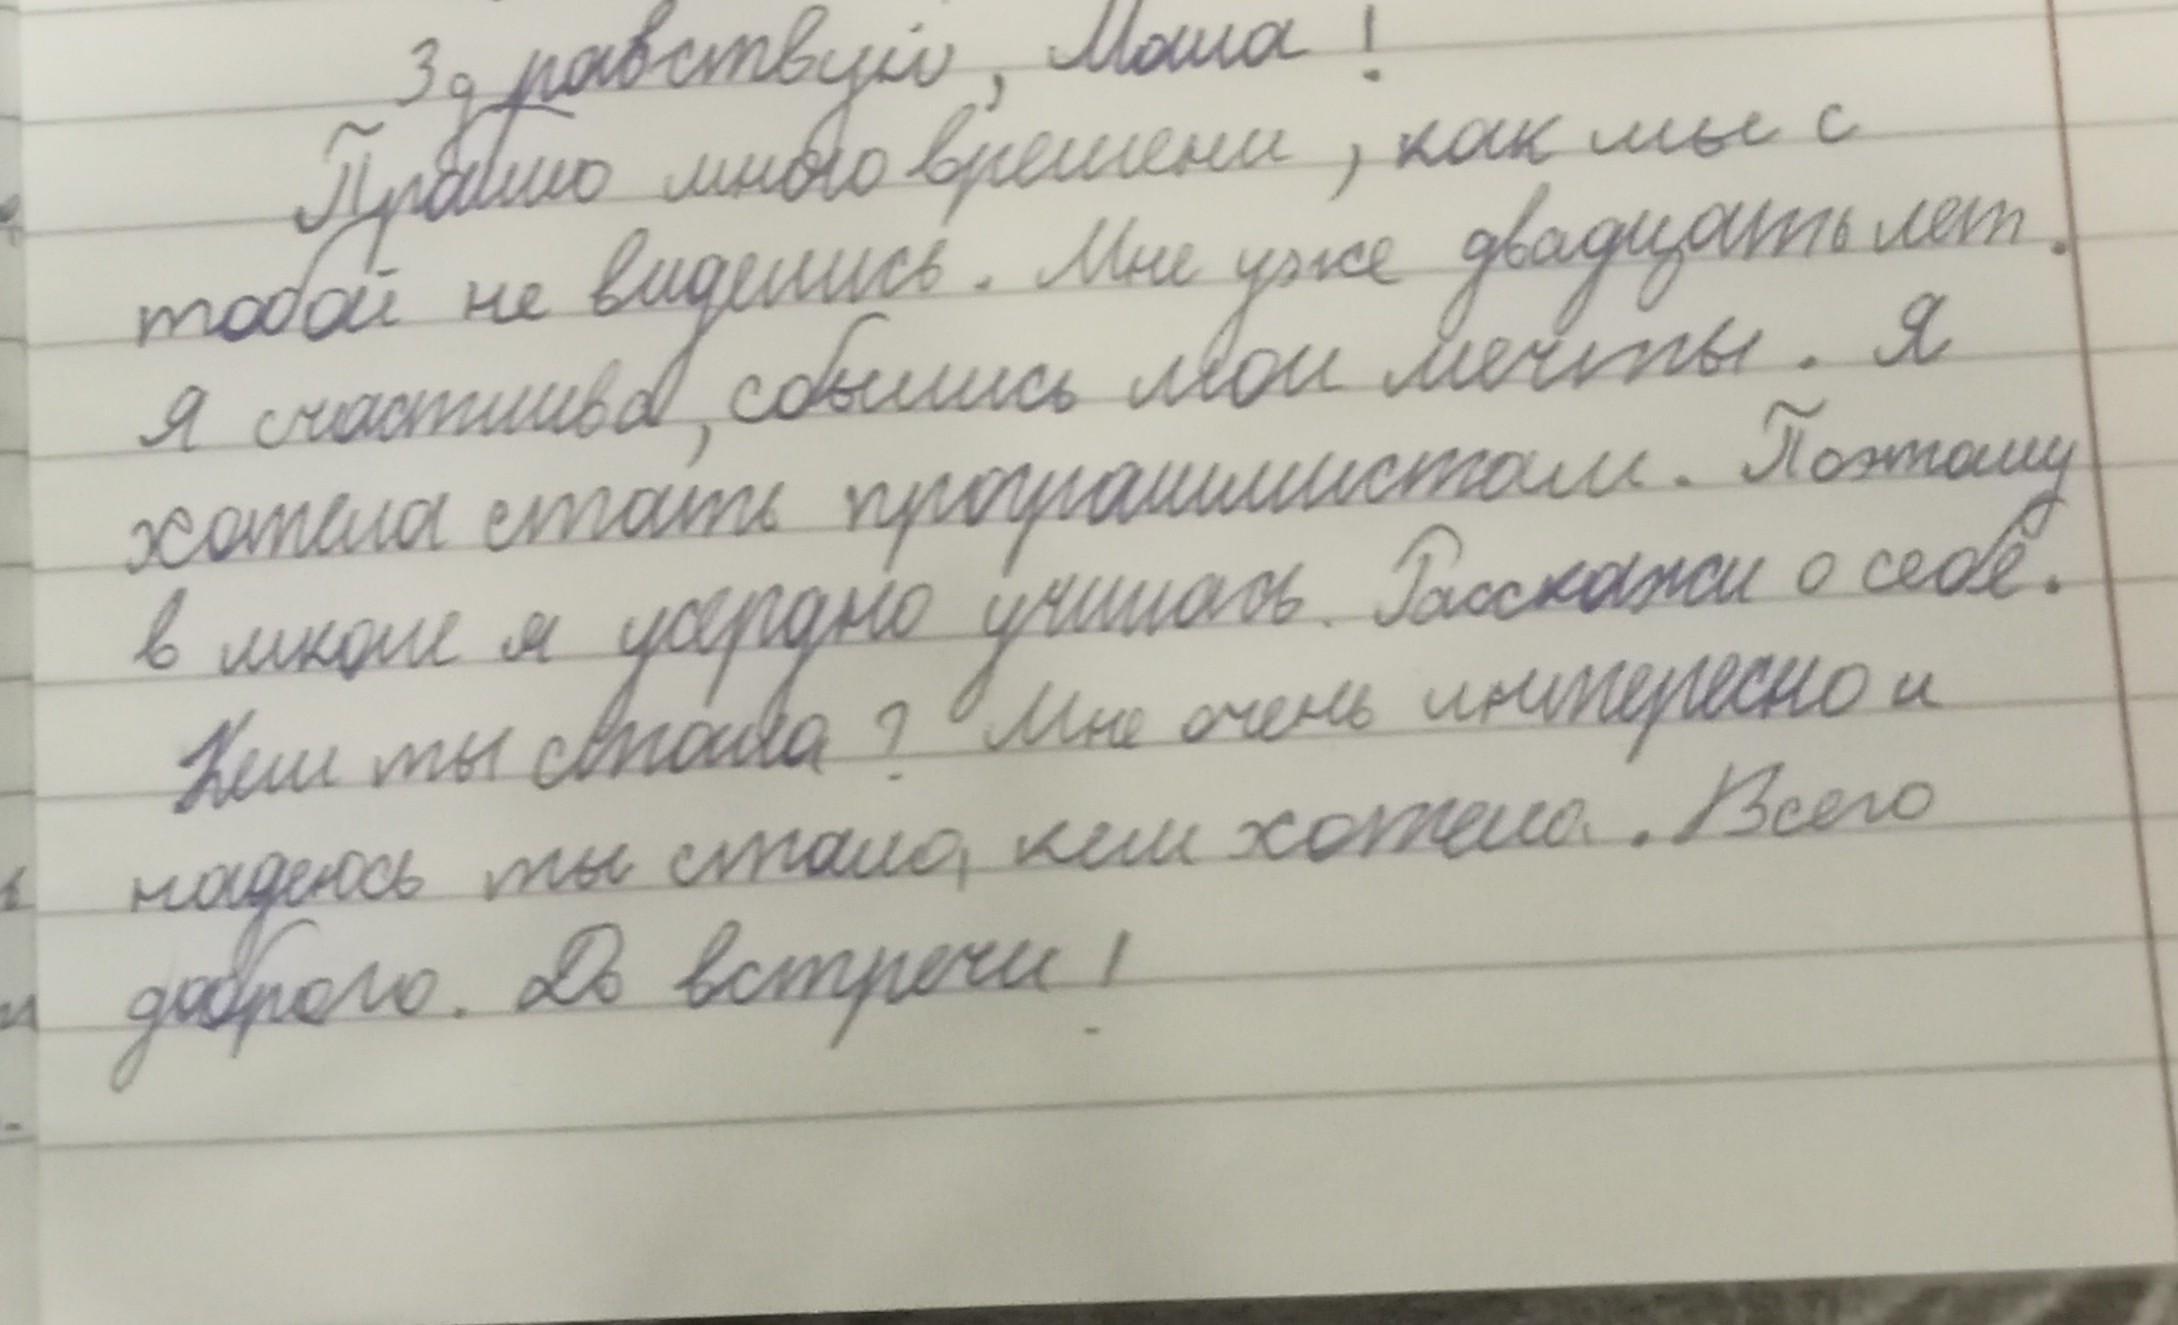 Здравствуй, Маша!
Прошло много времени, как мы с
тобой не виделись. Мне уже двадцать лет.
Я счастлива, сбылись мои мечты. Я
хотела стать программистом. Поэтому
в школе я усердно училась. Расскажи о себе.
Кем ты стала? Мне очень интересно и
надеюсь ты стала, кем хотела. Всего
доброго. До встречи!